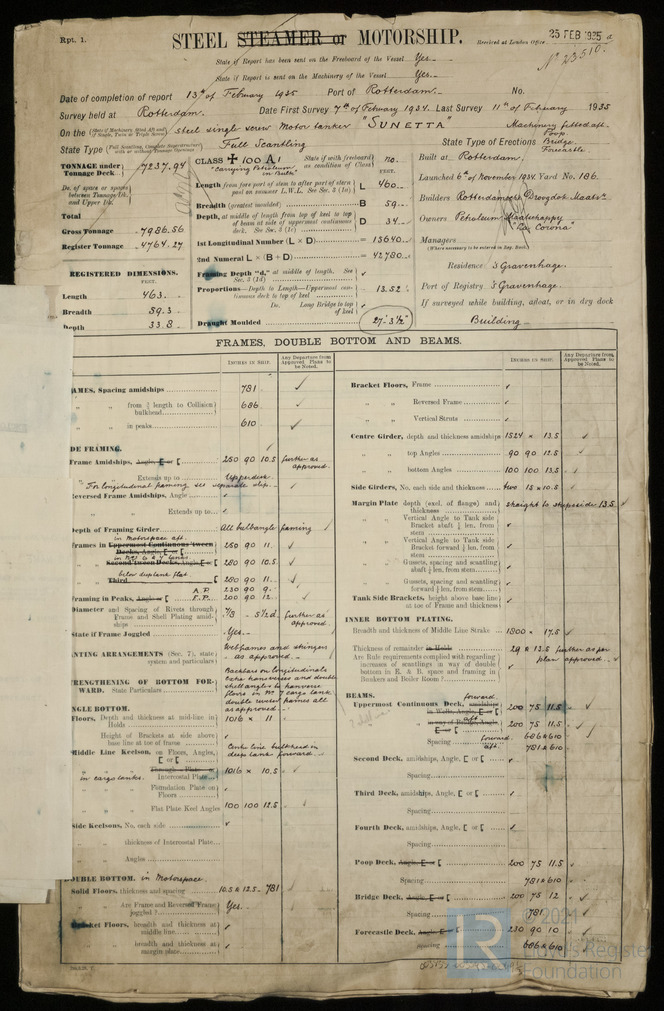 Rpt. 1.
STEEL STEAMER or MOTORSHIP.
Received at London Office 25 FEB 1935
No 23510.
State if Report has been sent on the Freeboard of the Vessel Yes
State if Report is sent on the Machinery of the Vessel Yes
Date of completion of report 13th of February 1935 Port of Rotterdam. No.
Survey held at Rotterdam. Date First Survey 7th of February 1934. Last Survey 11th of February 1935
On the steel single screw Motor tanker "SUNETTA" Machinery fitted aft.
State Type Full Scantling
State Type of Erections Poop Bridge Forecastle
TONNAGE under Tonnage Deck 7237.94
CLASS 100 A1 "carrying Petroleum in Bulk"
State if with freeboard as condition of Class no.
Built at Rotterdam.
Launched 6th of November 1934. Yard No. 186.
Builders Rotterdamsche Droogdok Maats
Owners Petroleum Maatschappy "La Corona"
Managers
(Where necessary to be entered in Reg. Book.)
Residence 's Gravenhage.
Port of Registry 's Gravenhage.
If surveyed while building, afloat, or in dry dock
Building
Total
Gross Tonnage 7986.56
Register Tonnage 4764.27
FEET.
Length from fore part of stem to after part of stern post on summer L.W.L. See Sec. 3 (1a) L 460
Breadth (greatest moulded) B 59
Depth, at middle of length from top of keel to top of beam at side of uppermost continuous deck. See Sec. 3 (1c) D 34
1st Longitudinal Number (L × D) = 15640
2nd Numeral L × (B + D) = 42780
Framing Depth "d," at middle of length. See Sec. 3 (1d)
Proportions—Depth to Length—Uppermost continuous deck to top of keel 13.52
Do. Long Bridge to top of keel
Draught Moulded 27'-3½"
REGISTERED DIMENSIONS.
FEET.
Length 463.
Breadth 59.3
Depth 33.8
FRAMES, DOUBLE BOTTOM AND BEAMS.
INCHES IN SHIP. Any Departure from Approved Plans to be Noted.
AMES, Spacing amidships 781
from length to Collision bulkhead 686
in peaks 610
DE FRAMING.
Frame Amidships, Angle, E or [ 250 90 10.5 further as approved.
Extends up to Upperdeck.
"For longitudinal framing see separate slip.
Reversed Frame Amidships, Angle
Extends up to
Depth of Framing Girder All bulbangle framing
in Motorspace aft.
Frames in Uppermost Continuous 'tween Decks, Angle, E or [ 250 90 11.
Second 'tween Decks, Angle, E or [ 280 90 10.5
below deeptank flat.
Third 280 90 11.
Framing in Peaks, Angle, E or [ A.P. 230 90 9.
F.P. 200 90 12
Diameter and Spacing of Rivets through Frame and Shell Plating amidships 7/8 - 5½d. further as approved.
State if Frame Joggled Yes.
ANTING ARRANGEMENTS (Sec. 7), state system and particulars Webframes and stringers as approved.
RENGTHENING OF BOTTOM FORWARD. State Particulars
NGLE BOTTOM.
Floors, Depth and thickness at mid-line in Holds 1016 × 11
Height of Brackets at side above base line at toe of frames
Middle Line Keelson, on Floors, Angles, E or [ Centre line bulkhead in deep tank forward.
in cargo tanks. Intercostal Plate 1016 × 10.5
Foundation Plate on Floors
Flat Plate Keel Angles 100 100 12.5
Side Keelsons, No. each side
thickness of Intercostal Plate
Angles
OUBLE BOTTOM. in Motorspace.
Solid Floors, thickness and spacing 10.5 & 12.5 - 781
Are Frame and Reversed Frame joggled? Yes.
Bracket Floors, breadth and thickness at middle line
breadth and thickness at margin plate
Bracket Floors, Frame
Reversed Frame
Vertical Struts
Centre Girder, depth and thickness amidships 1524 × 13.5
top Angles 90 90 12.5
bottom Angles 100 100 13.5
Side Girders, No. each side and thickness two 15 × 10.5
Margin Plate depth (excl. of flange) and thickness straight to shipside 13.5
Vertical Angle to Tank side Bracket abaft ¼ len. from stem
Vertical Angle to Tank side Bracket forward ¼ len. from stem
Gussets, spacing and scantling abaft ¼ len. from stem
Gussets, spacing and scantling forward ¼ len. from stem
Tank Side Brackets, height above base line at toe of Frame and thickness
INNER BOTTOM PLATING.
Breadth and thickness of Middle Line Strake 1800 × 17.5
Thickness of remainder in Holds 14 & 13.5 further as per plan approved.
Are Rule requirements complied with regarding increases of scantlings in way of double bottom in E. & B. space and framing in bunkers and Boiler Room?
BEAMS.
forward.
Uppermost Continuous Deck, amidships 200 75 11.5
aft. 200 75 11.5
Spacing forward. 686 & 610
aft. 781 & 610
Second Deck, amidships, Angle, E or [
Spacing
Third Deck, amidships, Angle, E or [
Spacing
Fourth Deck, amidships, Angle, E or [
Spacing
Poop Deck, Angle, E or [ 200 75 11.5
Spacing 781 & 610
Bridge Deck, Angle, E or [ 200 75 12
Spacing 781
Forecastle Deck, Angle, E or [ 230 90 10
spacing 686 & 610
© 2021
Lloyd's Register
Foundation